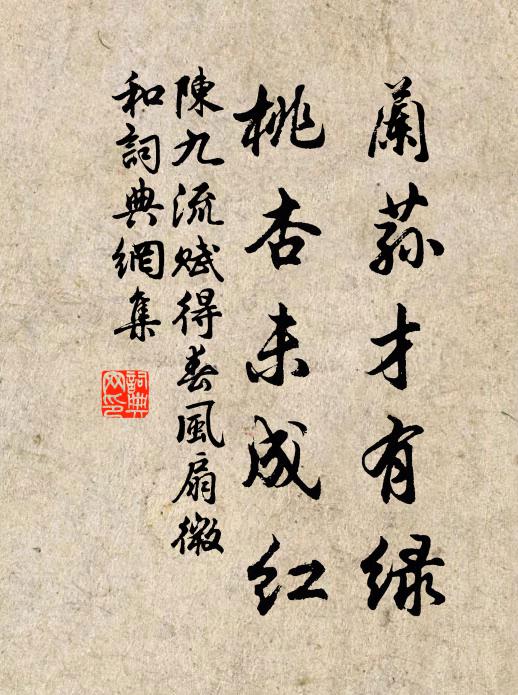 蘭蓀才有绿
桃杏未成红
陳九流賦得春風扇微
和詞典網集
詞典网印